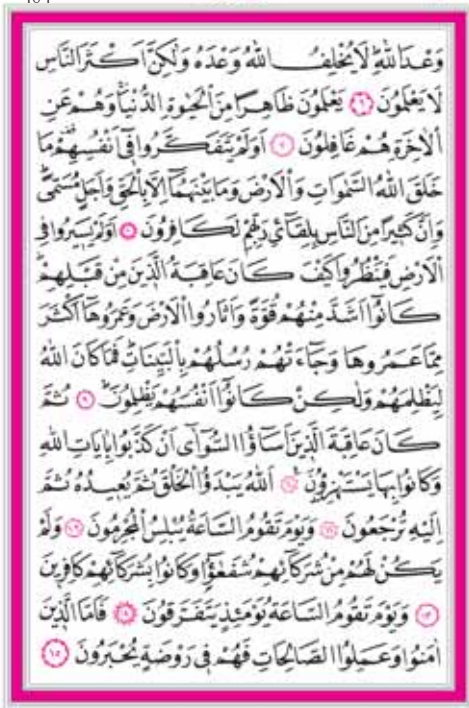 وَعْدَ اللّٰهِ لَا يُخْلِفُ اللّٰهُ وَعْدَهُ وَلٰكِنَّ اَكْثَرَ النَّاسِ
لَا يَعْلَمُونَ ﴿٦﴾ يَعْلَمُونَ ظَاهِرًا مِنَ الْحَيٰوةِ الدُّنْيَا وَهُمْ عَنِ
الْاٰخِرَةِ هُمْ غَافِلُونَ ﴿٧﴾ اَوَلَمْ يَتَفَكَّرُوا فٓى اَنْفُسِهِمْ مَا
خَلَقَ اللّٰهُ السَّمٰوَاتِ وَالْاَرْضَ وَمَا بَيْنَهُمَٓا اِلَّا بِالْحَقِّ وَاَجَلٍ مُسَمًّى
وَاِنَّ كَثِيرًا مِنَ النَّاسِ بِلِقَٓائِ رَبِّهِمْ لَكَافِرُونَ ﴿٨﴾ اَوَلَمْ يَسِيرُوا فِى
الْاَرْضِ فَيَنْظُرُوا كَيْفَ كَانَ عَاقِبَةُ الَّذِينَ مِنْ قَبْلِهِمْ
كَانُٓوا اَشَدَّ مِنْهُمْ قُوَّةً وَاَثَارُوا الْاَرْضَ وَعَمَرُوهَٓا اَكْثَرَ
مِمَّا عَمَرُوهَا وَجَٓاءَتْهُمْ رُسُلُهُمْ بِالْبَيِّنَاتِ فَمَا كَانَ اللّٰهُ
لِيَظْلِمَهُمْ وَلٰكِنْ كَانُٓوا اَنْفُسَهُمْ يَظْلِمُونَ ﴿٩﴾ ثُمَّ
كَانَ عَاقِبَةَ الَّذِينَ اَسَٓاؤُا السُّٓوآٰى اَنْ كَذَّبُوا بِاٰيَاتِ اللّٰهِ
وَكَانُوا بِهَا يَسْتَهْزِؤُنَ ﴿١٠﴾ اَللّٰهُ يَبْدَؤُا الْخَلْقَ ثُمَّ يُعِيدُهُ ثُمَّ
اِلَيْهِ تُرْجَعُونَ ﴿١١﴾ وَيَوْمَ تَقُومُ السَّاعَةُ يُبْلِسُ الْمُجْرِمُونَ ﴿١٢﴾ وَلَمْ
يَكُنْ لَهُمْ مِنْ شُرَكَٓائِهِمْ شُفَعٰٓؤُا وَكَانُوا بِشُرَكَٓائِهِمْ كَافِرِينَ
﴿١٣﴾ وَيَوْمَ تَقُومُ السَّاعَةُ يَوْمَئِذٍ يَتَفَرَّقُونَ ﴿١٤﴾ فَاَمَّا الَّذِينَ
اٰمَنُوا وَعَمِلُوا الصَّالِحَاتِ فَهُمْ فِى رَوْضَةٍ يُحْبَرُونَ ﴿١٥﴾